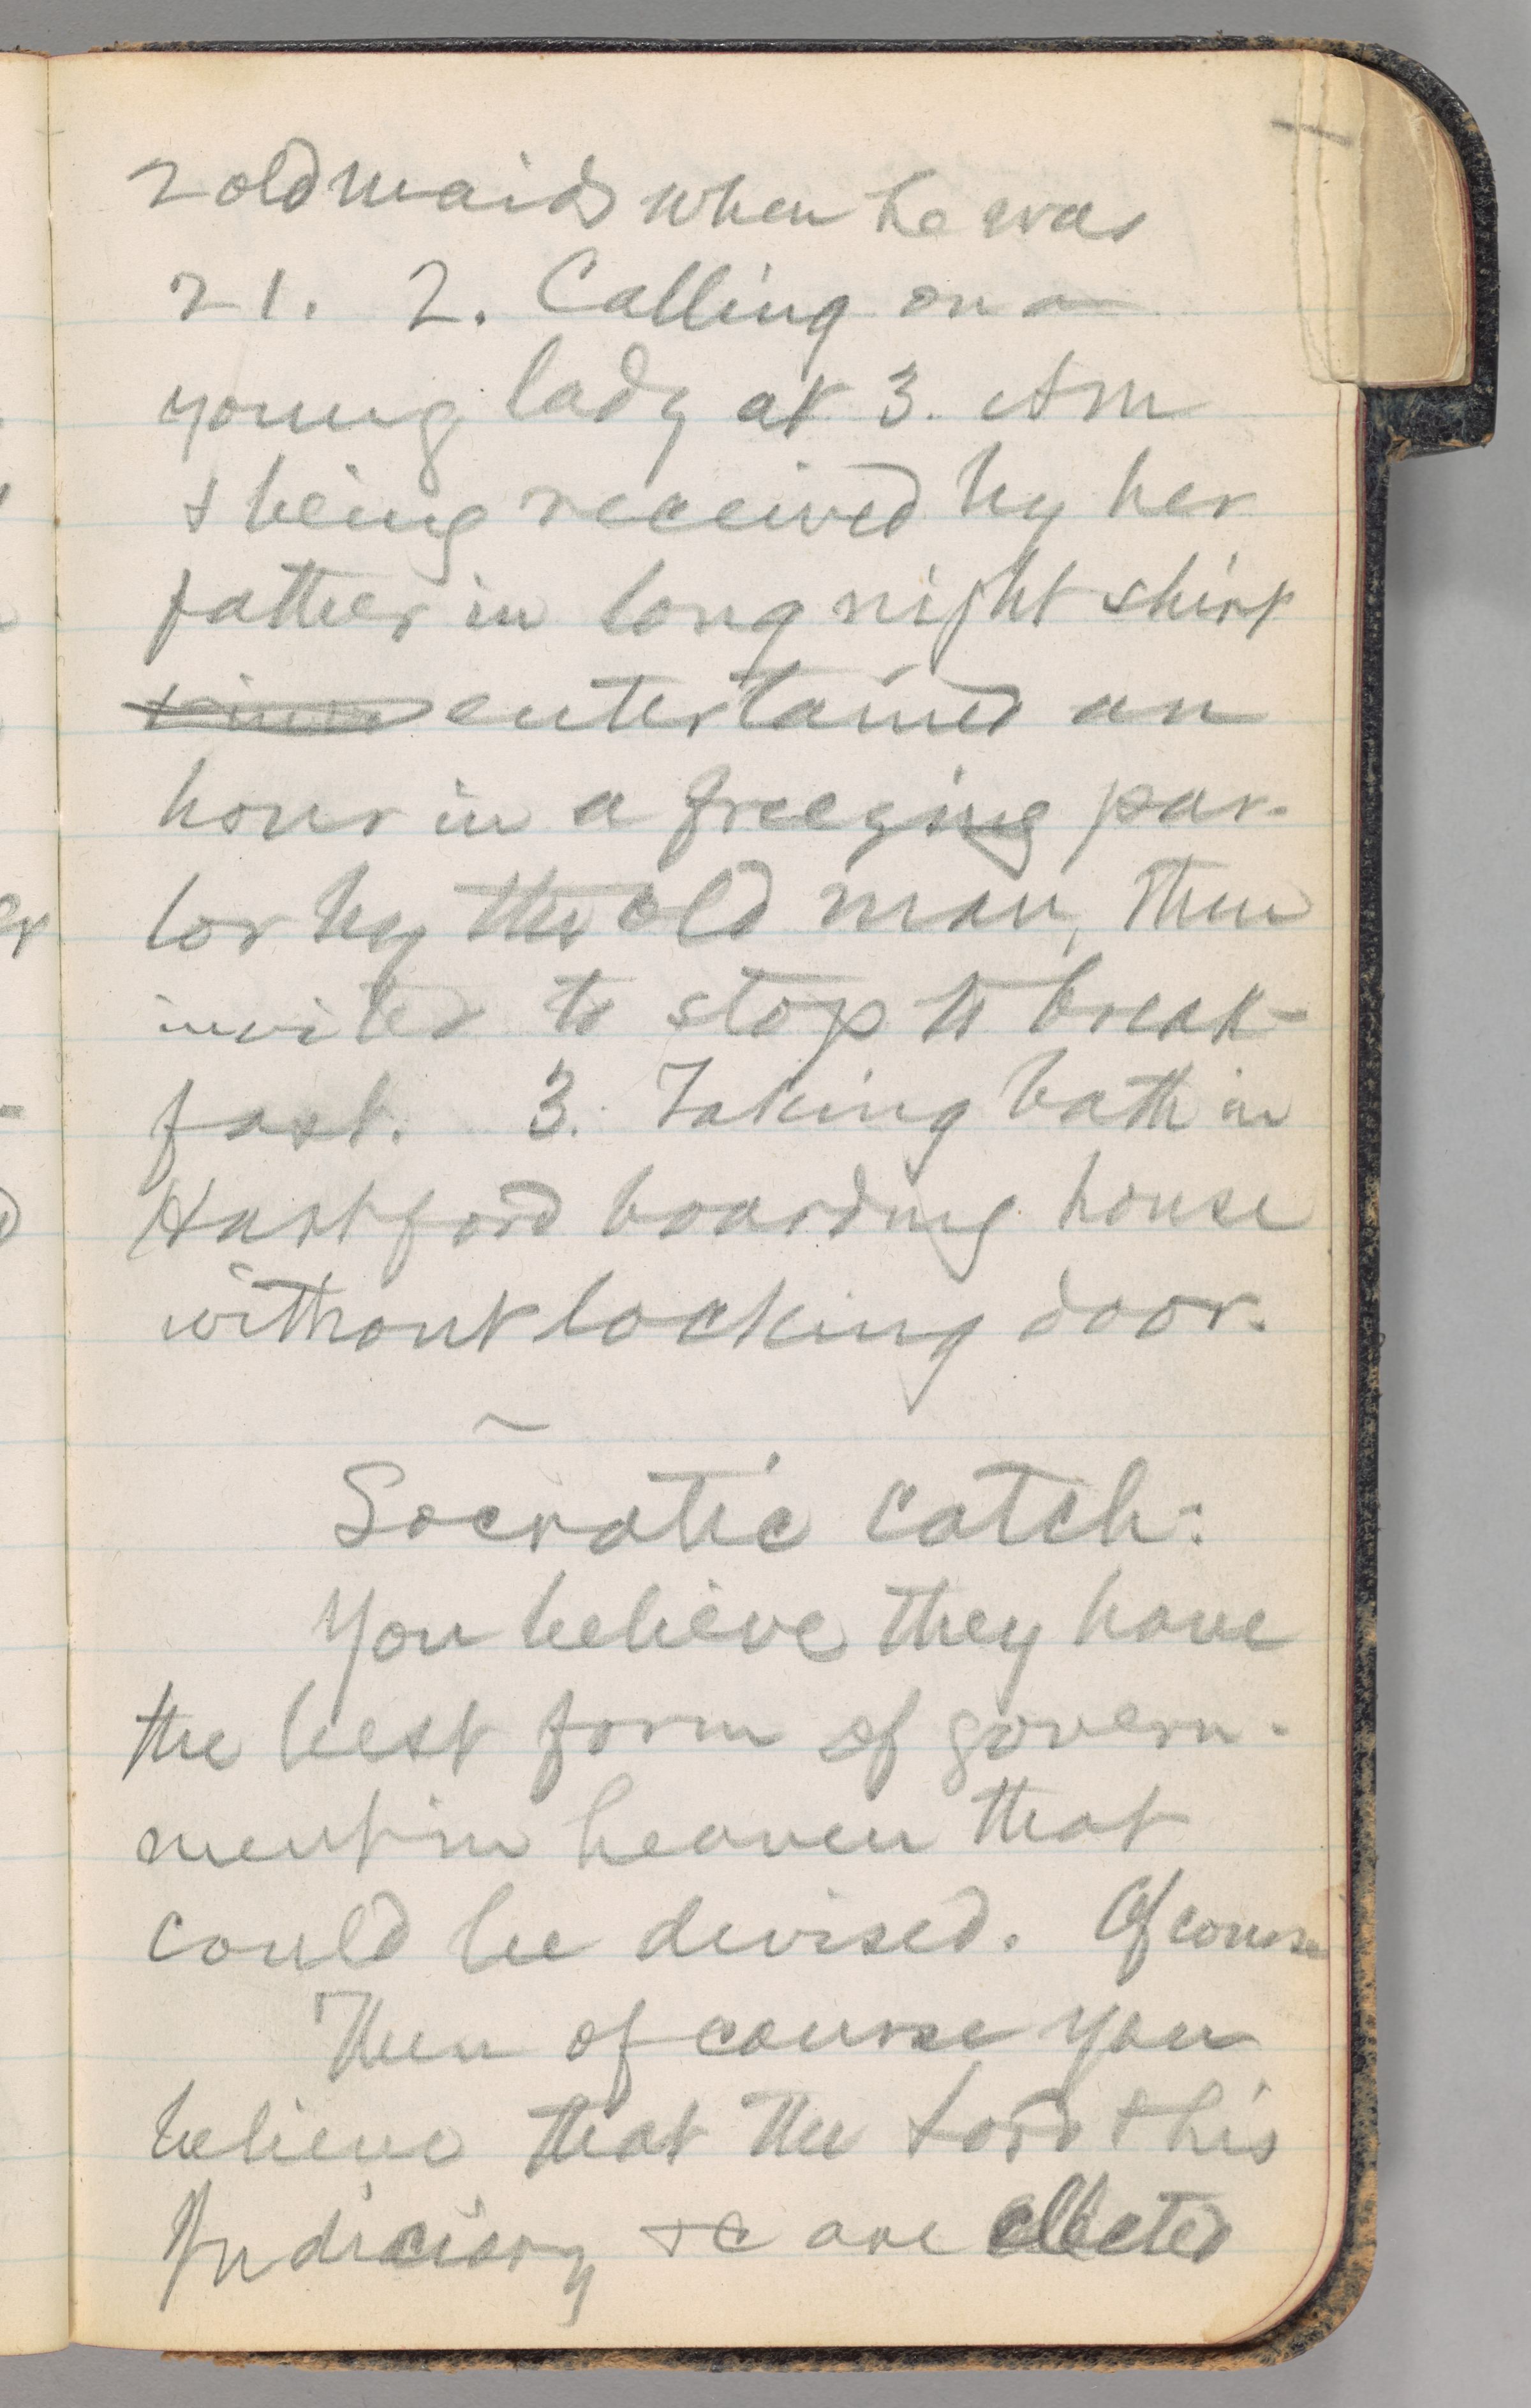 2 old maids when he was
21. 2. Calling on a
young lady at 3. AM
& being received by her
father in long night shirt
entertained an
hour in a freezing par-
lor by the old man, then
invited to stop to break-
fast. 3. Taking bath in
Hartford boarding house
without locking door.
~
Socratic catch:
You believe they have
the best form of govern-
ment in heaven that
could be devised. Of course
Then of course you
believe that the Lord & his
Judiciary &c are elected